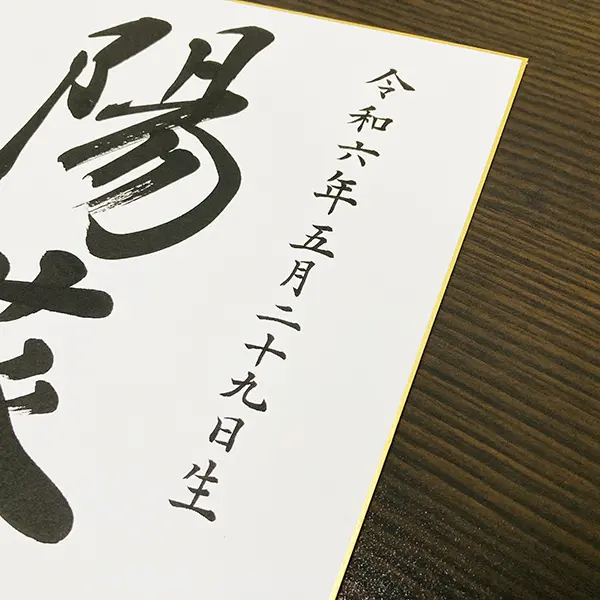 令和六年五月二十九日生
陽